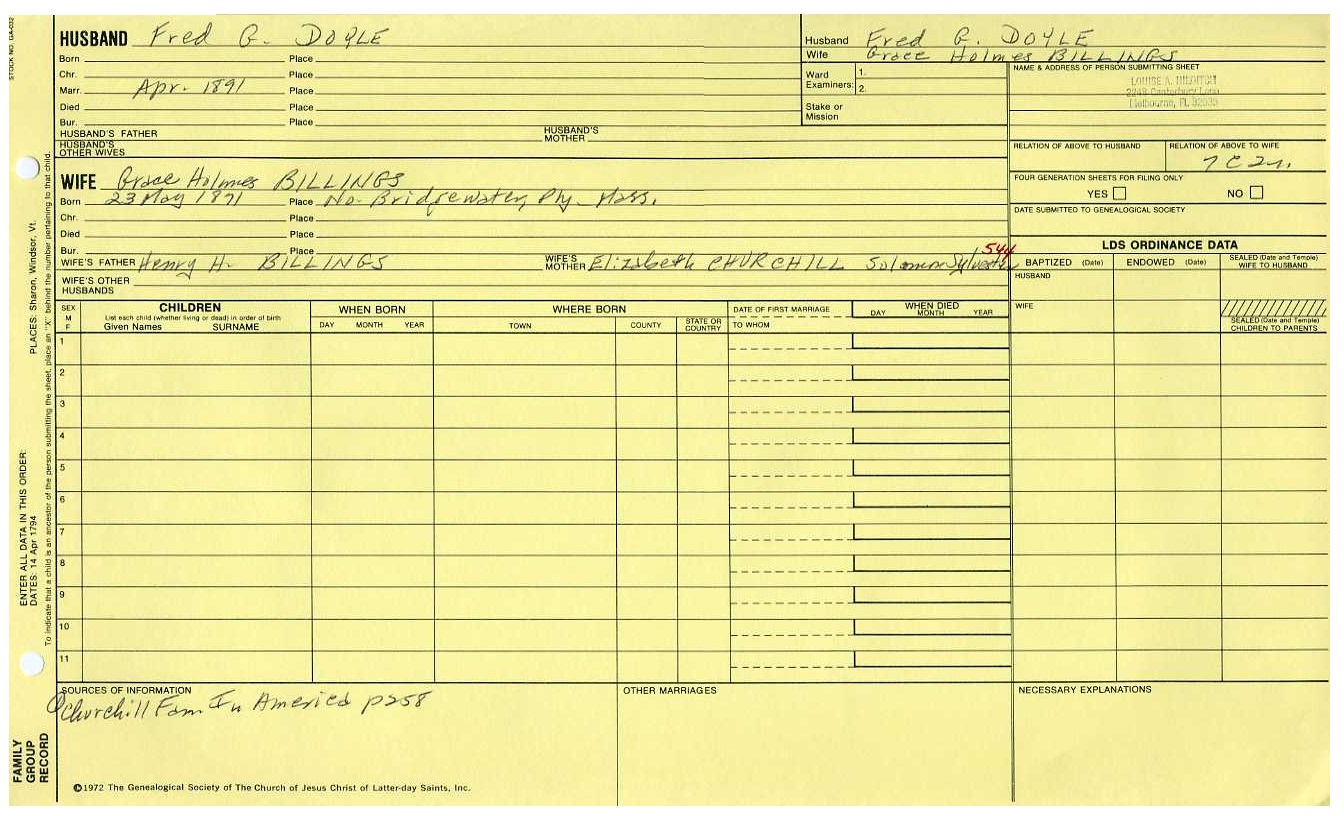 STOCK NO. GA-032
HUSBAND Fred G. DOYLE
Born Place
Chr. Place
Marr. Apr. 1891 Place
Died Place
Bur. Place
HUSBAND'S FATHER HUSBAND'S MOTHER
HUSBAND'S OTHER WIVES
Husband Fred G. DOYLE
Wife Grace Holmes BILLINGS
Ward Examiners: 1.
2.
Stake or Mission
NAME & ADDRESS OF PERSON SUBMITTING SHEET
LOUISE A.
2248 Canterbury Lane
Melbourne, FL
RELATION OF ABOVE TO HUSBAND RELATION OF ABOVE TO WIFE
7C2r.
FOUR GENERATION SHEETS FOR FILING ONLY
YES NO
DATE SUBMITTED TO GENEALOGICAL SOCIETY
WIFE Grace Holmes BILLINGS
Born 23 May 1871 Place No. Bridgewater, Ply. Mass.
Chr. Place
Died Place
Bur. Place
WIFE'S FATHER Henry H. BILLINGS WIFE'S MOTHER Elizabeth CHURCHILL Solomon Sylvester 544
WIFE'S OTHER HUSBANDS
LDS ORDINANCE DATA
BAPTIZED (Date) ENDOWED (Date) SEALED (Date and Temple) WIFE TO HUSBAND
HUSBAND
WIFE
SEALED (Date and Temple) CHILDREN TO PARENTS
SEX M F
CHILDREN
List each child (whether living or dead) in order of birth
Given Names SURNAME
WHEN BORN
DAY MONTH YEAR
WHERE BORN
TOWN COUNTY STATE OR COUNTRY
DATE OF FIRST MARRIAGE
TO WHOM
WHEN DIED
DAY MONTH YEAR
1
2
3
4
5
6
7
8
9
10
11
SOURCES OF INFORMATION
Churchill Fam In America p258
OTHER MARRIAGES
NECESSARY EXPLANATIONS
©1972 The Genealogical Society of The Church of Jesus Christ of Latter-day Saints, Inc.
FAMILY GROUP RECORD
ENTER ALL DATA IN THIS ORDER:
DATES: 14 Apr 1794
PLACES: Sharon, Windsor, Vt.
To indicate that a child is an ancestor of the person submitting the sheet, place an "X" behind the number pertaining to that child.